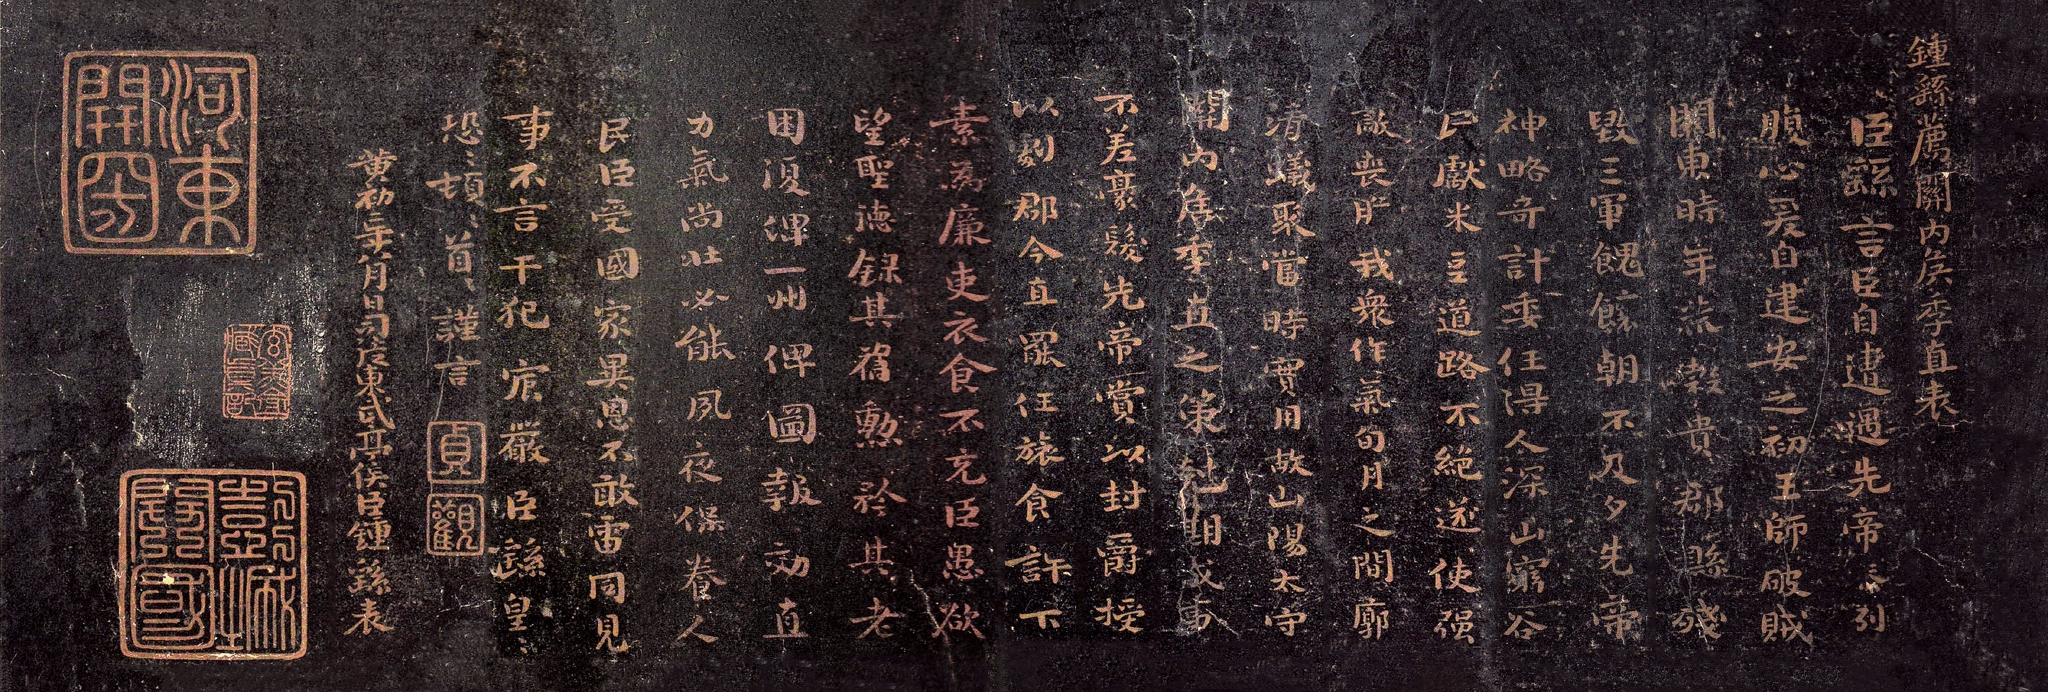 鍾繇薦關內侯季直表
臣繇言臣自遭遇先帝忝列
腹心爰自建安之初王師破賊
關東時年荒穀貴郡縣殘
毀三軍餽饟朝不及夕先帝
神略奇計委任得人深山窮谷
民獻米豆道路不絕遂使强
敵喪膽我衆作氣旬月之間廓
清蟻聚當時實用故山陽太守
關內侯季直之策剋期成事
不差豪髮先帝賞以封爵授
以劇郡今直罷任旅食許下
素爲廉吏衣食不充臣愚欲
望聖德錄其舊勳矜其老
困復俾一州俾圖報効直
力氣尚壯必能夙夜保養人
民臣受國家異恩不敢雷同見
事不言干犯宸嚴臣繇皇〻
恐〻頓〻首〻謹言
貞
觀
黃初二年八月日司徒東武亭侯臣鍾繇表
河東